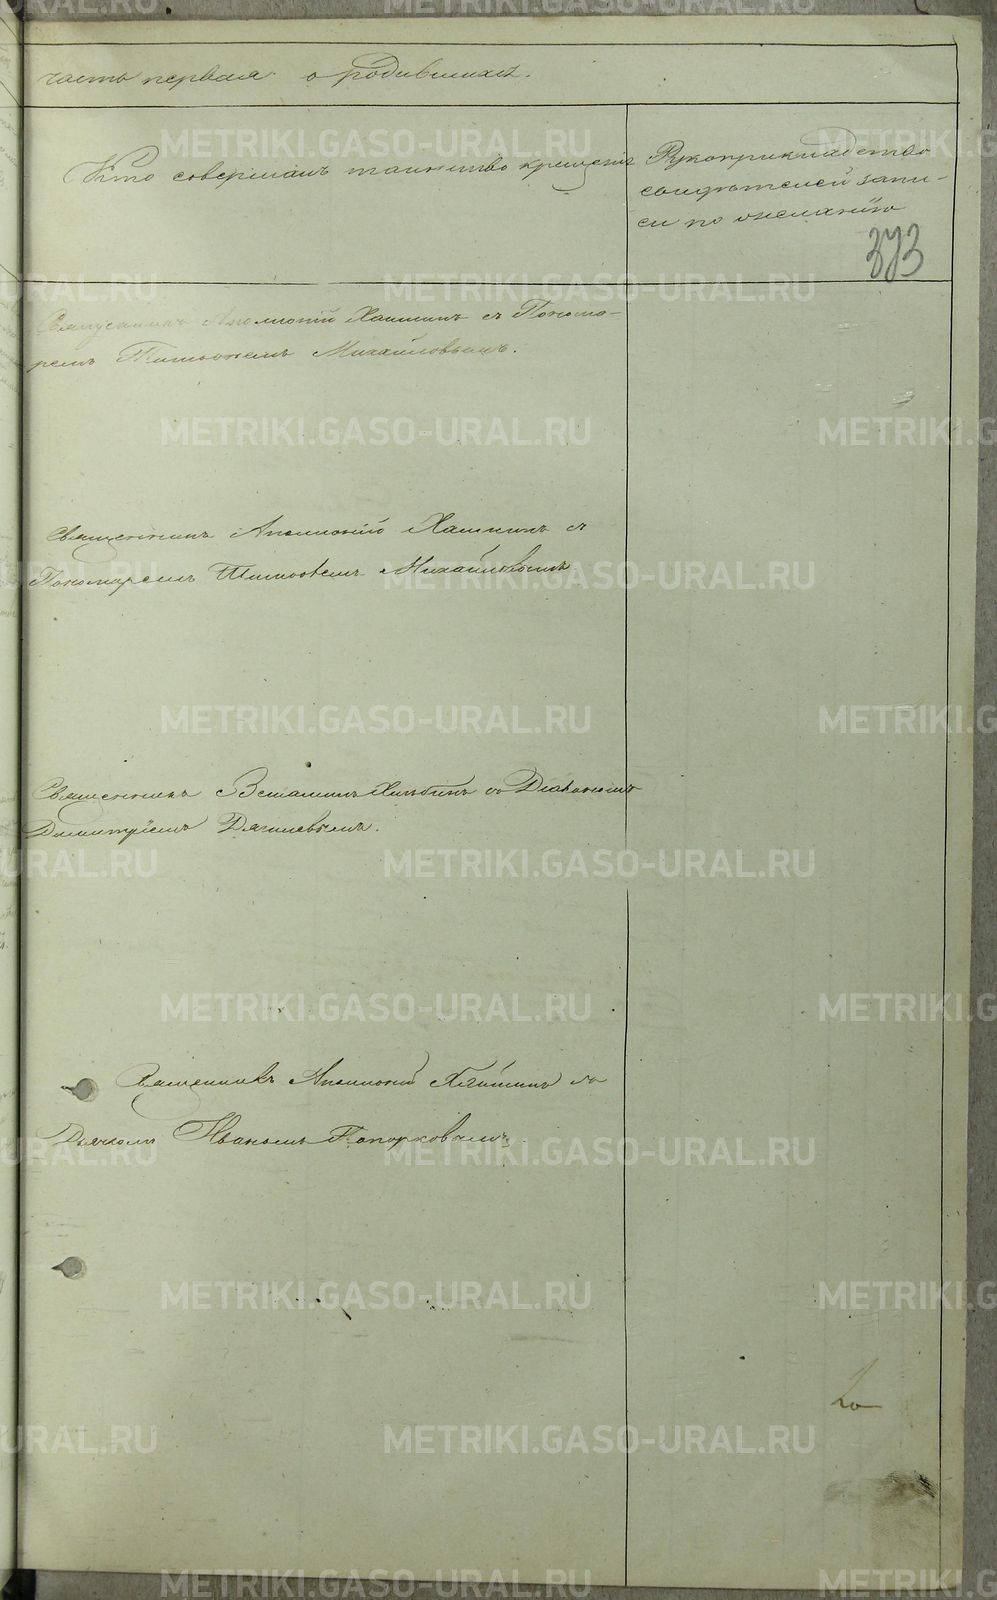 часть первая о родившихся.
Кто совершалъ таинство крещенія
Рукоприкладство
свидѣтелей запи-
си по желанію
373
Священникъ Аполлоній Хлынинъ съ Понома-
ремъ Тимофеемъ Михайловымъ.
Священникъ Аполлоній съ
Пономаремъ Тимофеемъ Михайловымъ
Священникъ Веніаминъ съ Діакономъ
Димитріемъ Дягилевымъ.
Священникъ Аполлоній съ
Дьячкомъ Иваномъ Топорковымъ.
METRIKI.GASO-URAL.RU